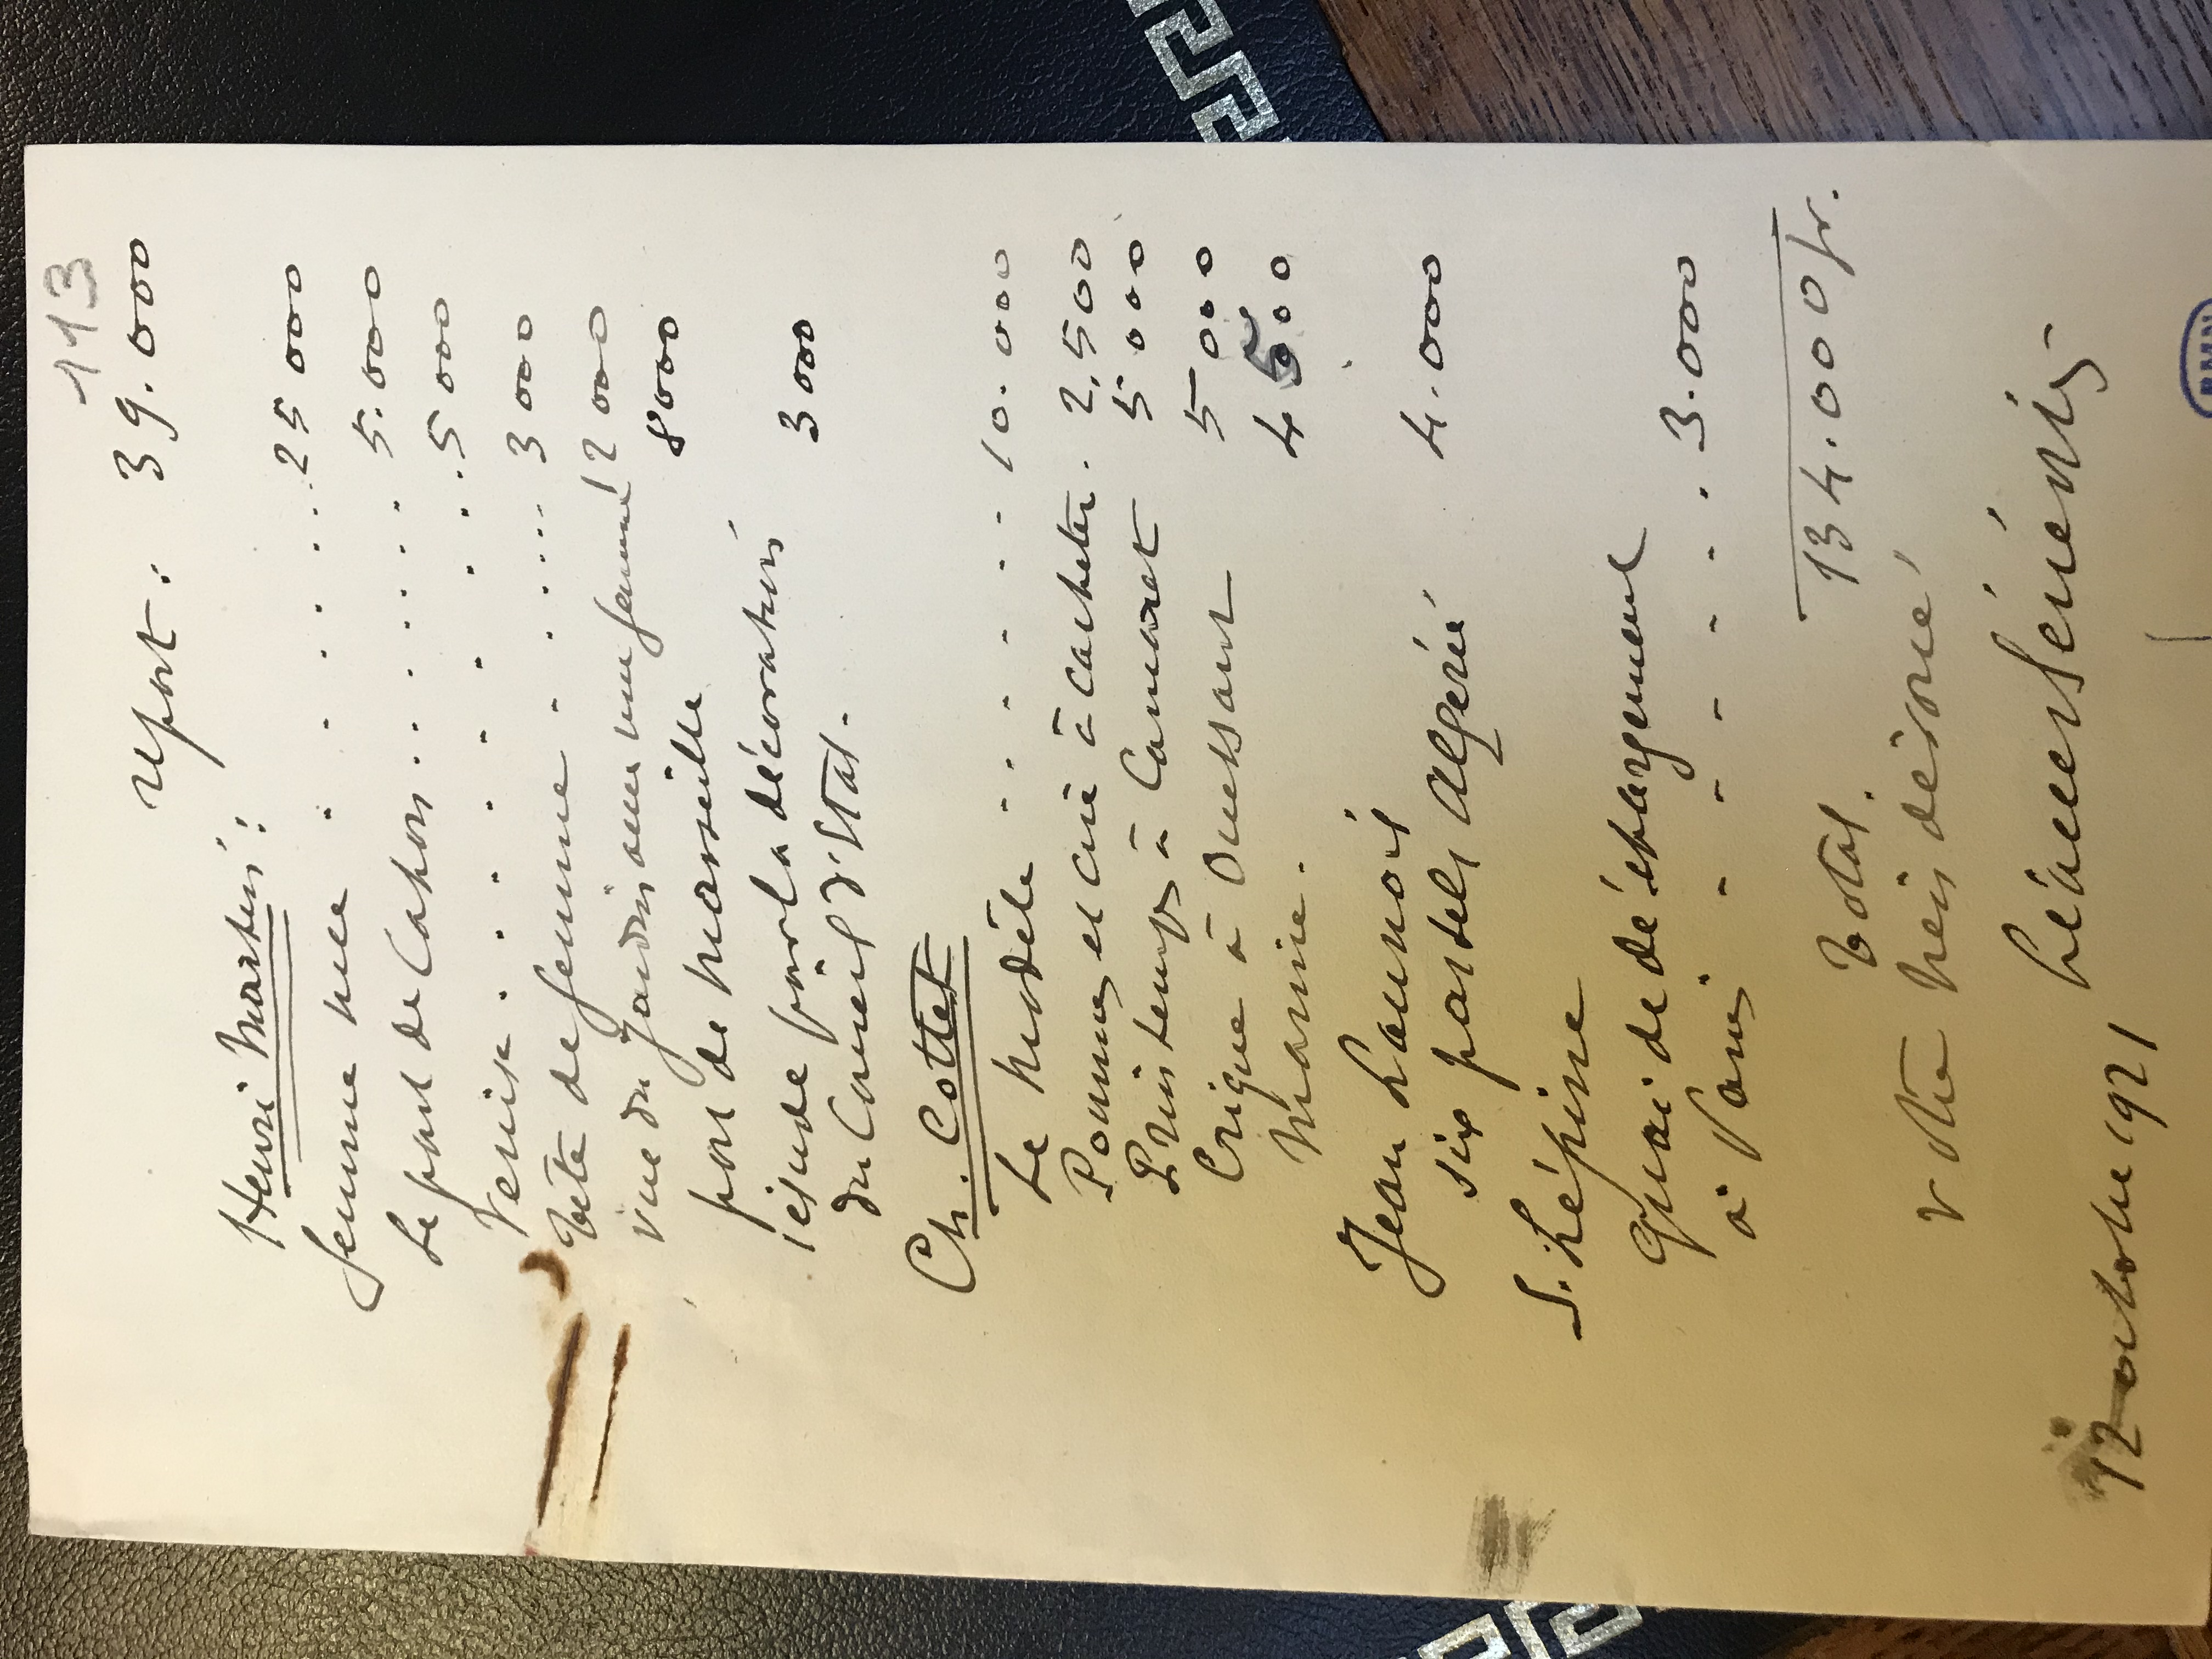 113
report : 39.000
Henri Martin :
femme nue . . . . . . . 25 000
Le pont de Cahors . . . . . . 5.000
Venise . . . . . . . . 5 000
Tête de femme . . . . . . 3 000
vue du Jardin avec une femme 2 000
port de Marseille 8000
esude pour la décoration 3 000
du Conseil d'Etat.
Ch. Cottet
Le modèle . . . . . . 10.000
Pommes et à cacheter. 2,500
Printemps à Camaret 5000
Crique à Ouessant 5000
Marine. 4500
Jean Launois
six pastels Algérie 4.000
S. Lépine
Quai de déchargement
à Paris . . . . . . . 3.000
Total. 134.000 fr.
votre très dévoué
Léonce Bénédite
12 octobre 1921